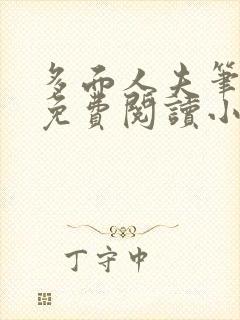 多面人夫筆
免費閱讀小
丁守中